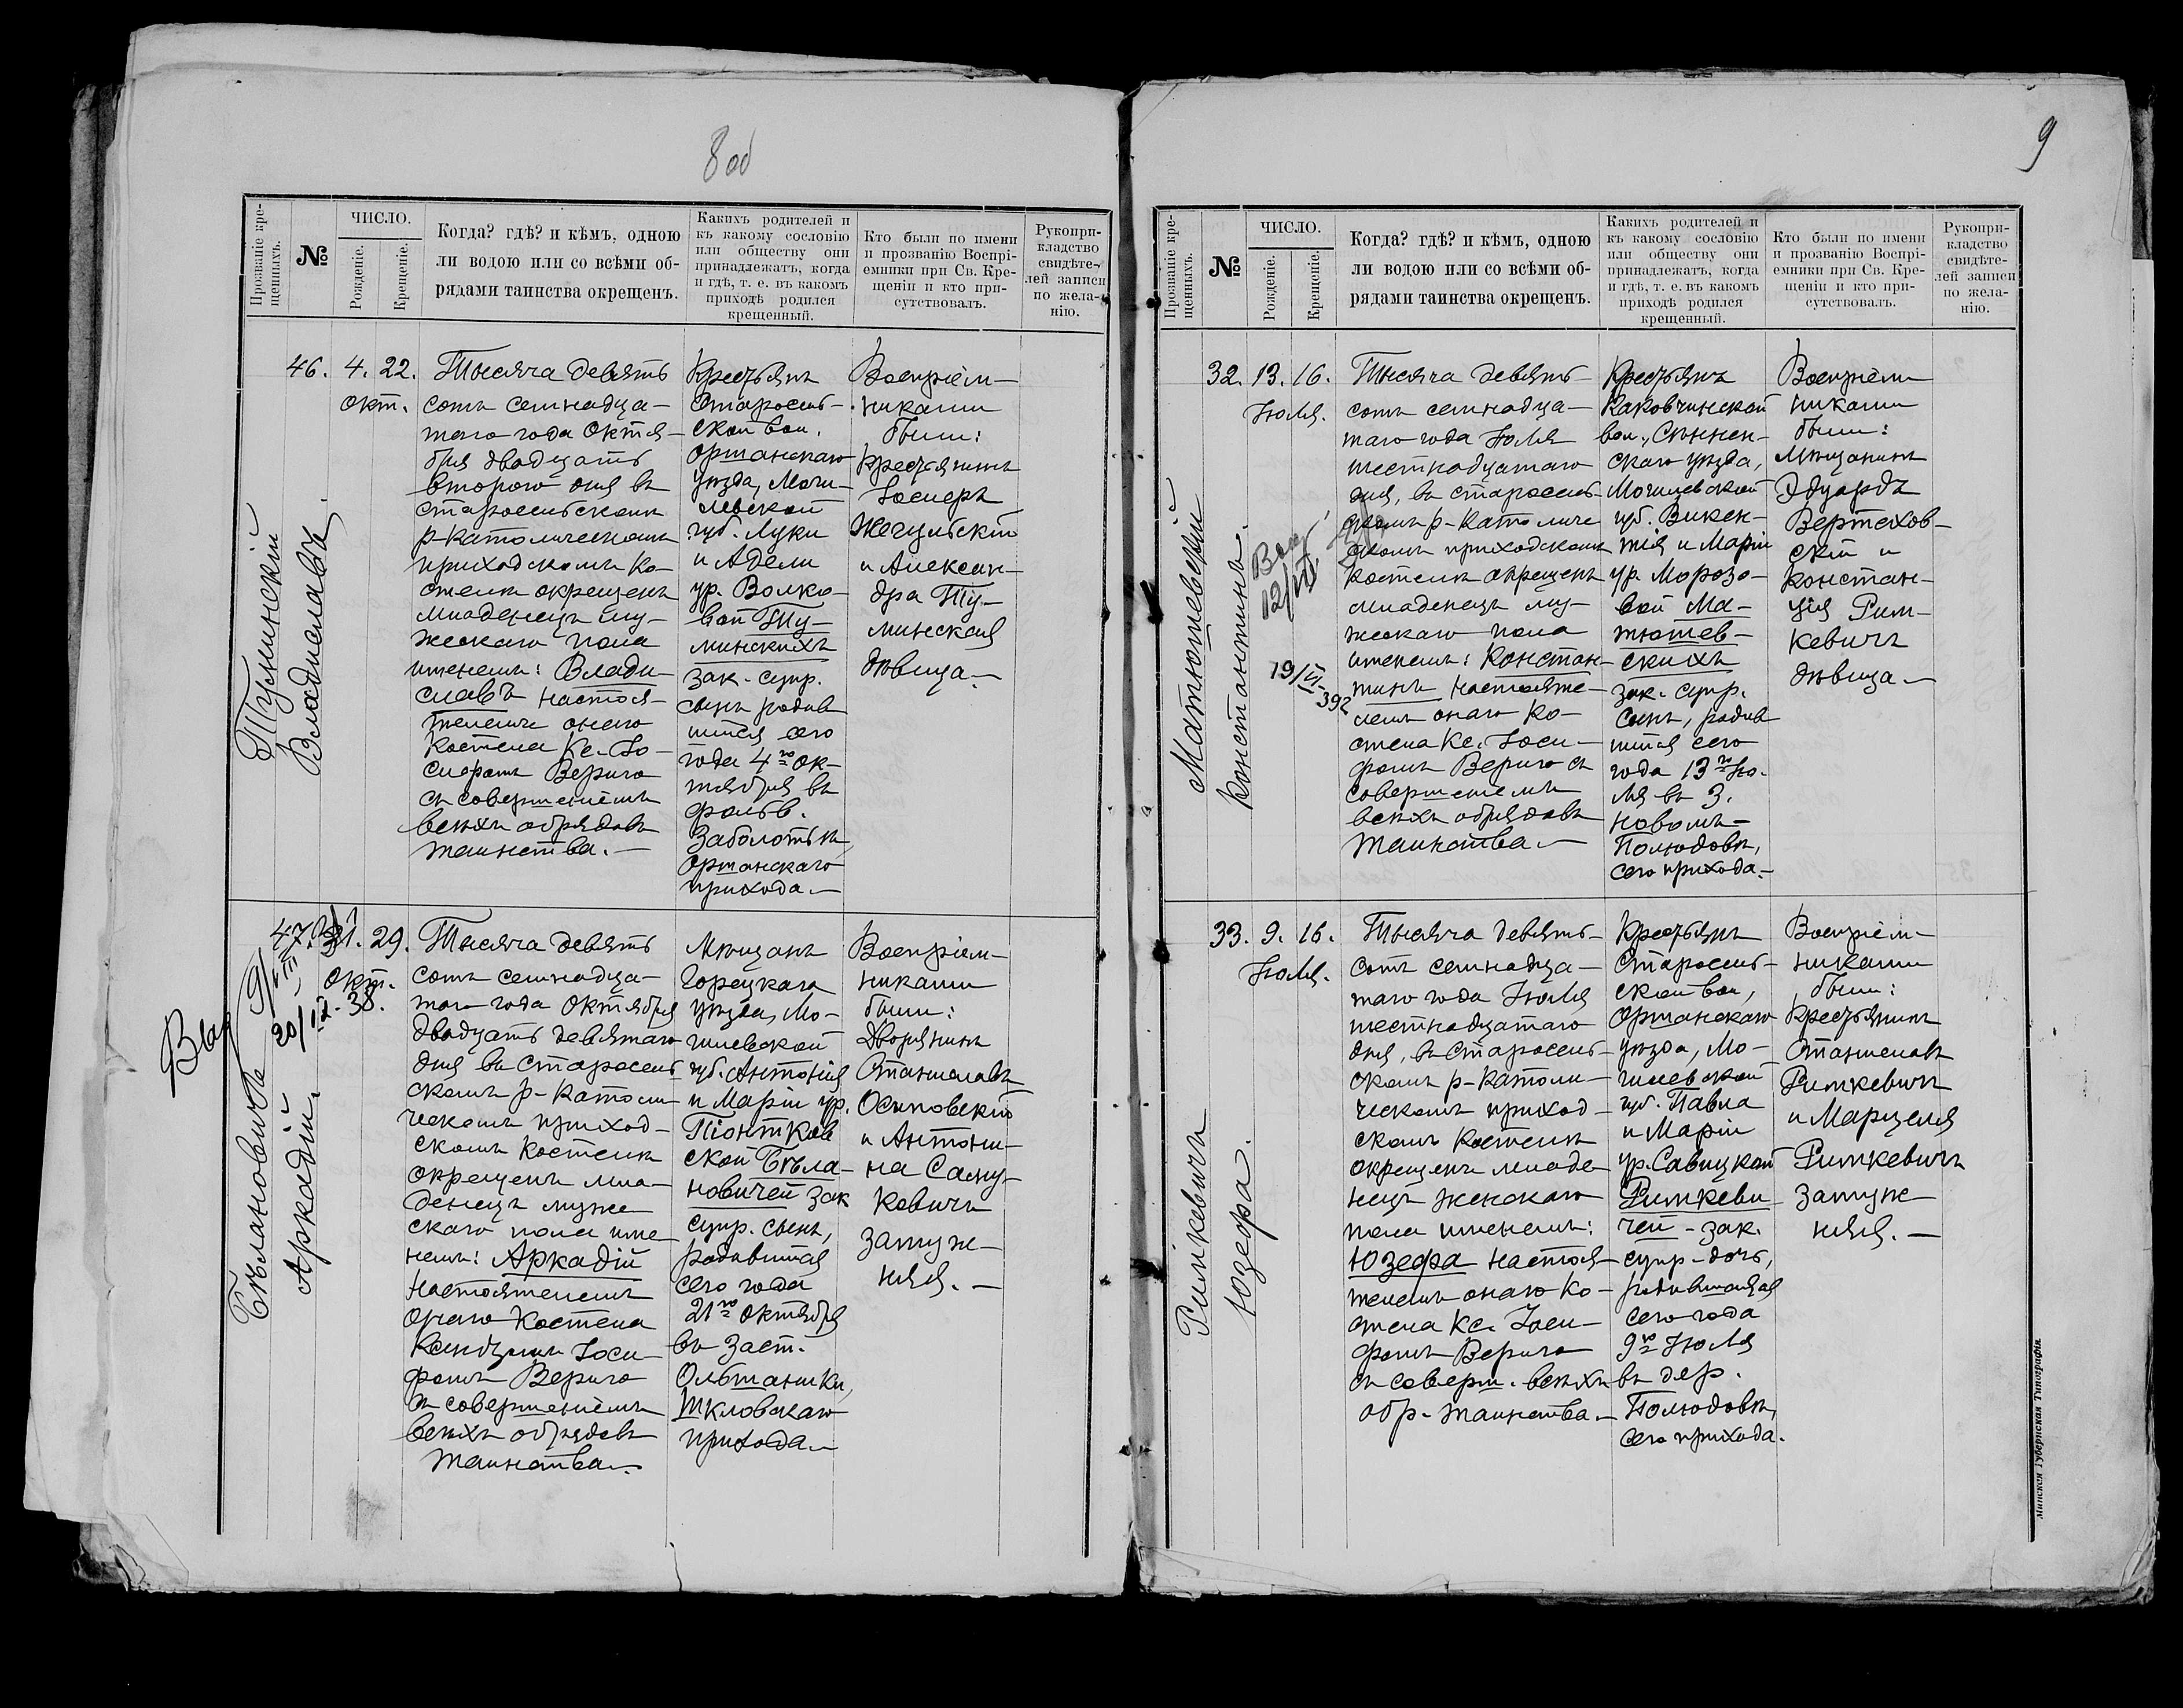 8 об
Прозваніе кре-
щенныхъ.
№
ЧИСЛО.
Рожденіе.
Крещеніе.
Когда? гдѣ? и кѣмъ, одною
ли водою или со всѣми об-
рядами таинства окрещенъ.
Какихъ родителей и
къ какому сословію
или обществу они
принадлежатъ, когда
и гдѣ, т. е. въ какомъ
приходѣ родился
крещенный.
Кто были по имени
и прозванію Воспрі-
емники при Св. Кре-
щеніи и кто при-
сутствовалъ.
Рукопри-
кладство
свидѣте-
лей записи
по жела-
нію.
Туминскій
Владиславъ.
46. 4. 22.
окт.
Тысяча девять
сотъ семнадца-
таго года Октя-
бря двадцать
второго дня въ
Старосельскомъ
р-католическомъ
приходскомъ ко-
стелѣ окрещенъ
младенецъ му-
жескаго пола
именемъ: Влади-
славъ настоя-
телемъ онаго
костела Кс. Іо-
сифомъ Верыго
съ совершеніемъ
всѣхъ обрядовъ
таинства.—
Крестьянъ
Старосель-
ской вол.
Оршанскаго
уѣзда, Моги-
левской
губ. Луки
и Адели
ур. Волко-
вой Ту-
минскихъ
зак. супр.
сынъ родив
шійся сего
года 4го ок-
тября въ
фольв.
Заболотьѣ,
Оршанскаго
прихода.—
Воспріем-
никами
были:
Крестьянинъ
Іосифъ
Жегульскій
и Алексан-
дра Ту-
минская
дѣвица.—
Бѣлановичъ
Аркадій.
47. 21. 29.
окт.
20/IX-38.
Тысяча девять
сотъ семнадца-
таго года Октября
двадцать девятаго
дня въ Старосель-
скомъ р-католи-
ческомъ приход-
скомъ костелѣ
окрещенъ мла-
денецъ муже
скаго пола име
немъ: Аркадій
настоятелемъ
онаго костела
Ксендзомъ Іоси
фомъ Верыго
съ совершеніемъ
всѣхъ обрядовъ
таинства.—
Мѣщанъ
Горецкаго
уѣзда, Мо-
гилевской
губ. Антонія
и Маріи ур.
Піонтков
ской Бѣла-
новичей зак
супр. сынъ,
родившійся
сего года
21го Октября
въ заст.
Ольшаники,
Шкловскаго
прихода.—
Воспріем-
никами
были:
Дворянинъ
Станиславъ
Осиповскій
и Антони-
на Саму-
ковичъ
замуж-
няя.—
9
Прозваніе кре-
щенныхъ.
№
ЧИСЛО.
Рожденіе.
Крещеніе.
Когда? гдѣ? и кѣмъ, одною
ли водою или со всѣми об-
рядами таинства окрещенъ.
Какихъ родителей и
къ какому сословію
или обществу они
принадлежатъ, когда
и гдѣ, т. е. въ какомъ
приходѣ родился
крещенный.
Кто были по имени
и прозванію Воспрі-
емники при Св. Кре-
щеніи и кто при-
сутствовалъ.
Рукопри-
кладство
свидѣте-
лей записи
по жела-
нію.
Матюшевскій
Константинъ.
19/VI-
392
32. 13. 16.
Іюля.
Тысяча девять-
сотъ семнадца-
таго года Іюля
шестнадцатаго
дня, въ Старосель-
скомъ р-католиче
скомъ приходскомъ
костелѣ окрещенъ
младенецъ му-
жескаго пола
именемъ: Констан-
тинъ настояте-
лемъ онаго ко-
стела Кс. Іоси-
фомъ Верыго съ
совершеніемъ
всѣхъ обрядовъ
таинства.—
Крестьянъ
Каковчинской
вол., Сѣннен-
скаго уѣзда,
Могилевской
губ. Викен-
тія и Маріи
ур. Морозо-
вой Ма-
тюшев-
скихъ
зак. супр.
сынъ, родив
шійся сего
года 13го Ію-
ля въ З.
Новомъ-
Полюдовѣ,
сего прихода.—
Воспріем
никами
были:
Мѣщанинъ
Эдуардъ
Вертехов-
скій и
Констан-
ція Рим-
кевичъ
дѣвица.—
Римкевичъ
Юзефа.
33. 9. 16.
Іюля.
Тысяча девять-
сотъ семнадца-
таго года Іюля
шестнадцатаго
дня, въ Старосель-
скомъ р-католи-
ческомъ приход-
скомъ костелѣ
окрещенъ младе
нецъ женскаго
пола именемъ:
Юзефа настоя-
телемъ онаго ко-
стела Кс. Іоси-
фомъ Верыго
съ соверш. всѣхъ
обр. таинства.—
Крестьянъ
Старосель-
ской вол,
Оршанскаго
уѣзда, Мо-
гилевской
губ. Павла
и Маріи
ур. Савицкой
Римкеви
чей - зак.
супр-дочь,
родившаяся
сего года
9го Іюля
въ дер.
Полюдовѣ,
сего прихода.
Воспріем-
никами
были:
Крестьянинъ
Станиславъ
Римкевичъ
и Марцеля
Римкевичъ
замуж-
няя.—
Минская Губернская Типографія.